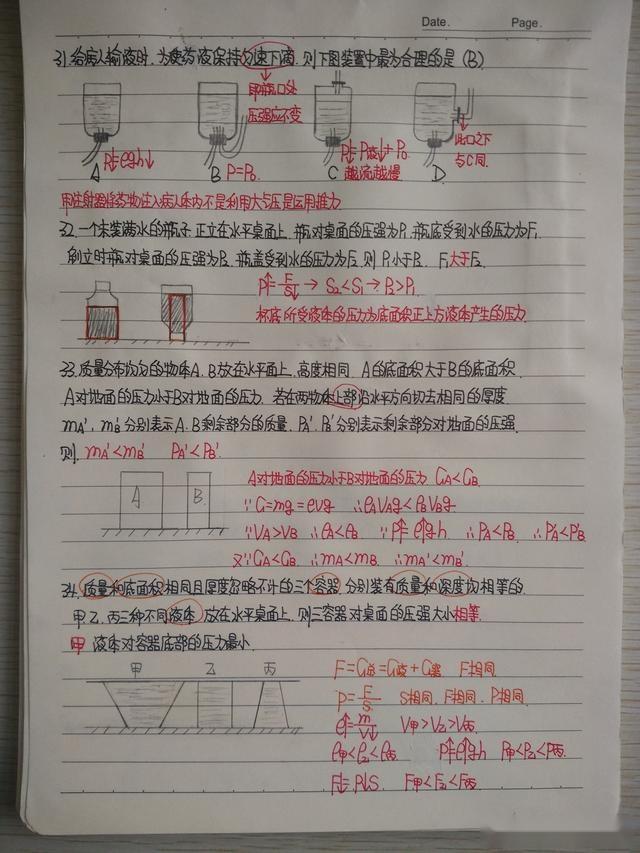 Date. Page.
31. 给病人输液时,为使药液保持匀速下滴,则下图装置中最为合理的是(B)
即瓶口处
压强应不变
A P↓=ρgh↓ B P=P₀ C P↓=P液↓+P₀ D 此口之下
越流越慢 与C同
用注射器将药物注入病人体内不是利用大气压是运用推力
32. 一个未装满水的瓶子.正立在水平桌面上,瓶对桌面的压强为P₁.瓶底受到水的压力为F₁
倒立时瓶对桌面的压强为P₂.瓶盖受到水的压力为F₂.则P₁小于P₂ F₁大于F₂
P↑=F/S↓→S₂<S₁→P₂>P₁
杯底所受液体的压力为底面积正上方液体产生的压力
33. 质量分布均匀的物体A.B放在水平面上.高度相同.A的底面积大于B的底面积.
A对地面的压力小于B对地面的压力.若在两物体上部沿水平方向切去相同的厚度
mA′,mB′分别表示A.B剩余部分的质量.PA′.PB′分别表示剩余部分对地面的压强
则 mA′<mB′ PA′<PB′
A B
A对地面的压力小于B对地面的压力 GA<GB
∵G=mg=ρvg ∴ρAVAg<ρBVBg
∵VA>VB ∴ρA<ρB ∵P↑=ρ↑gh ∴PA<PB ∴PA′<PB′
又∵GA<GB ∴mA<mB ∴mA′<mB′
34. 质量和底面积相同且厚度忽略不计的三个容器.分别装有质量和深度均相等的
甲.乙.丙三种不同液体.放在水平桌面上.则三容器对桌面的压强大小相等
甲液体对容器底部的压力最小
甲 乙 丙
F=G总=G液+G器 F相同
P=F/S S相同.F相同.P相同
ρ↑=m/V↓ V甲>V乙>V丙
ρ甲<ρ乙<ρ丙 P↑=ρ↑gh P甲<P乙<P丙
F↓=P↓S F甲<F乙<F丙